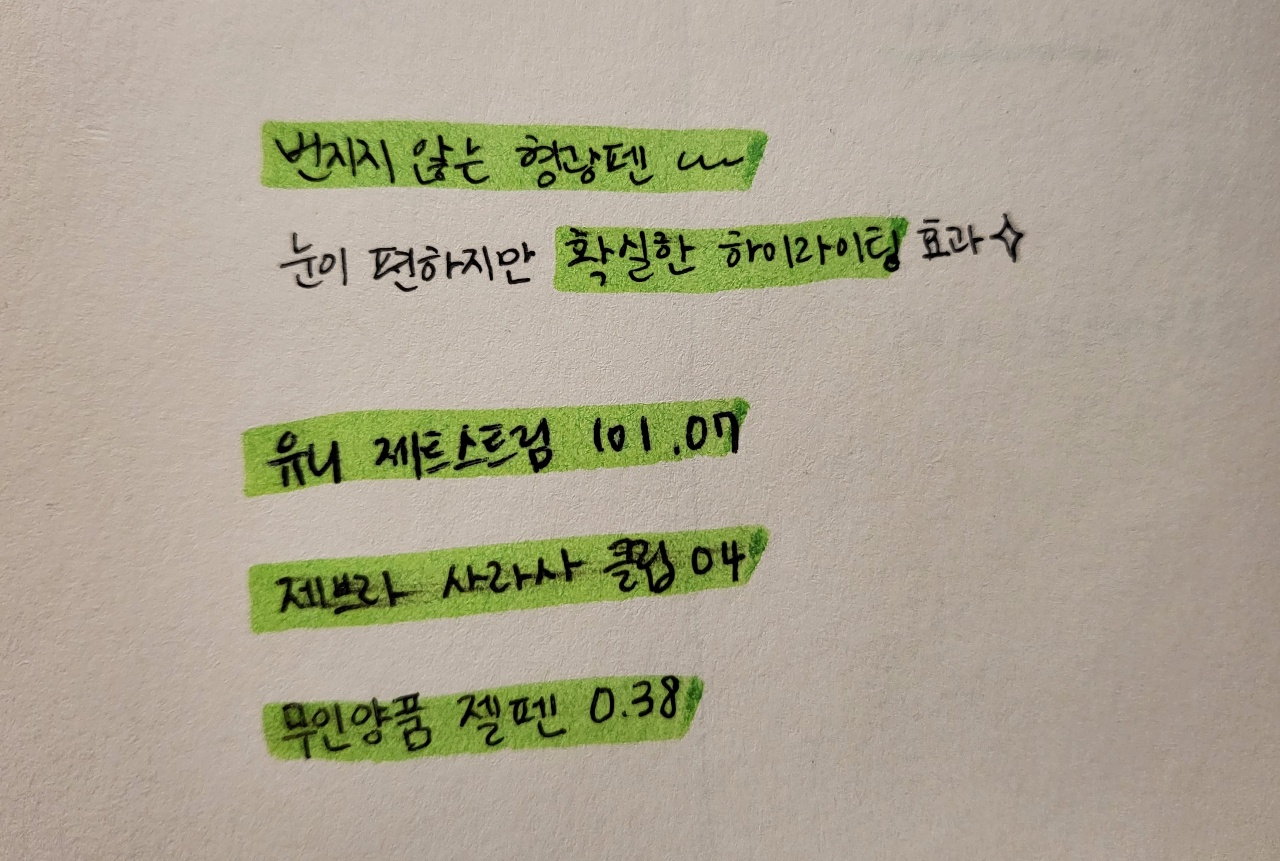 번지지 않는 형광펜 ~~
눈이 편하지만 확실한 하이라이팅 효과✧
유니 제트스트림 101.07
제브라 사라사 클립 04
무인양품 젤펜 0.38